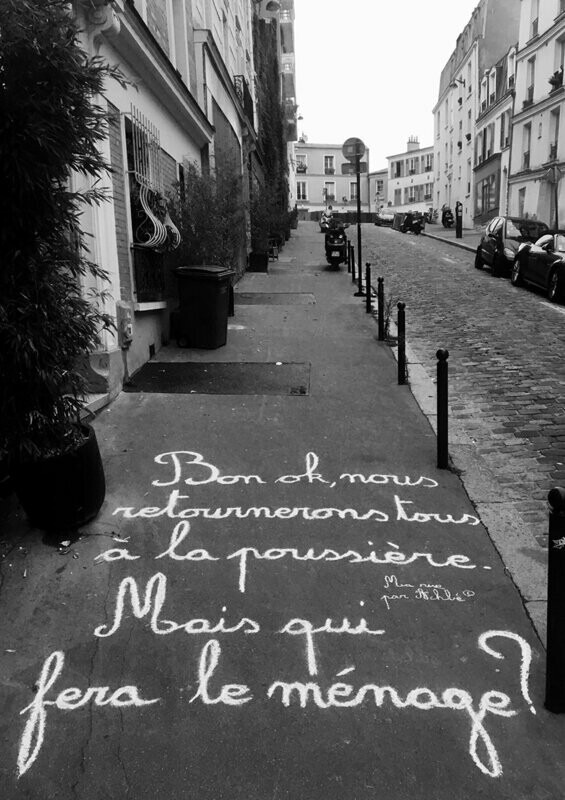 Bon ok, nous
retournerons tous
à la poussière.
Ma rue
par Achbé
Mais qui
fera le ménage?